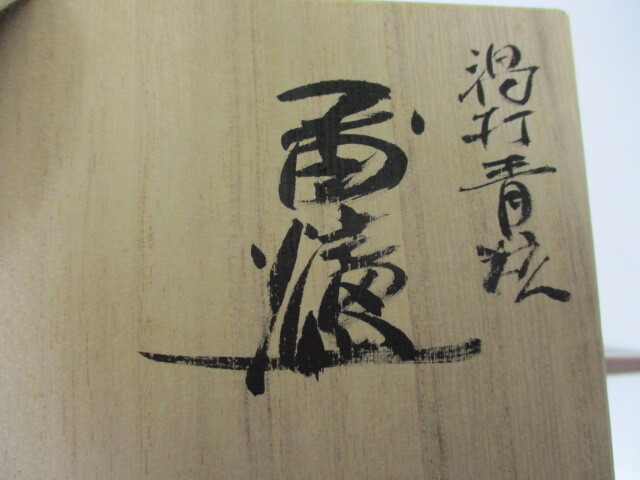 渦打青銅
香爐